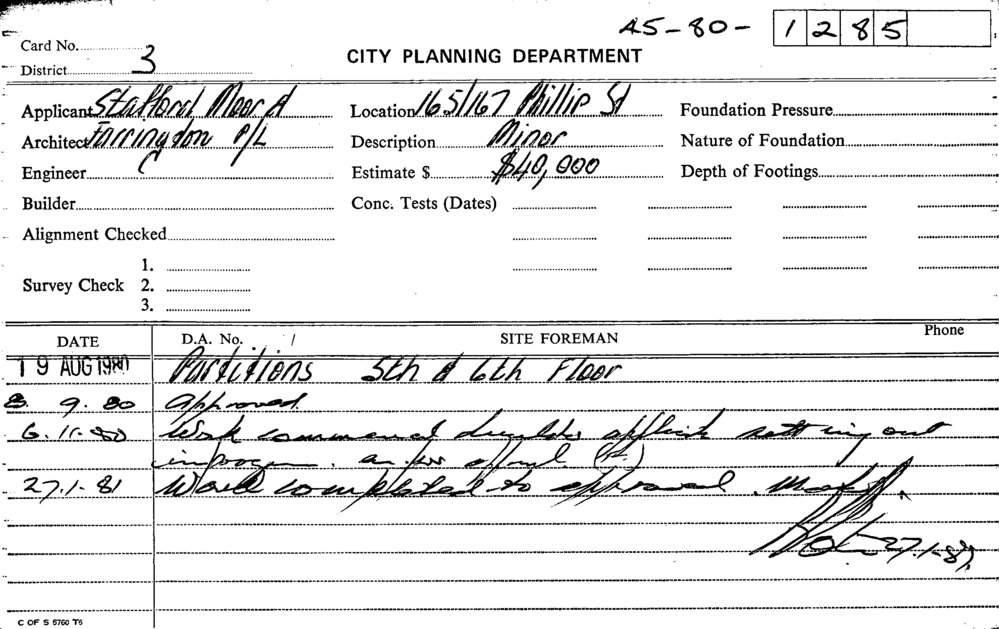 45-80- 1285
Card No.
District 3
CITY PLANNING DEPARTMENT
Applicant Stafford Moor &
Location 165/167 Phillip St
Foundation Pressure
Architect Farringdon P/L
Description Minor
Nature of Foundation
Engineer
Estimate $ $40,000
Depth of Footings
Builder
Conc. Tests (Dates)
Alignment Checked
Survey Check
1.
2.
3.
DATE
D.A. No. /
SITE FOREMAN
Phone
19 AUG 1980 Partitions 5th & 6th Floor
8. 9. 80 Approved
6. 11. 80 Work commenced setting out
in as per
27.1-81 Work completed to approval.
27.1-81
C OF S 5760 T6